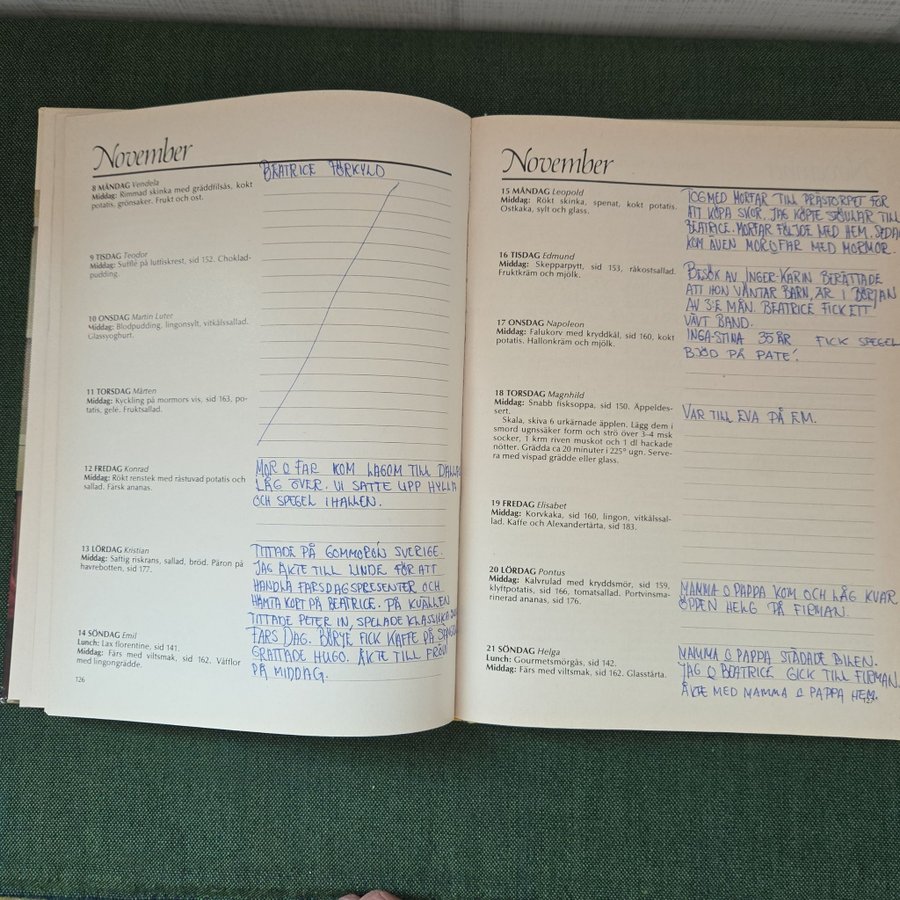 November
BEATRICE FÖRKYLD
8 MÅNDAG Vendela
Middag: Rimmad skinka med gräddfilsås, kokt
potatis, grönsaker. Frukt och ost.
9 TISDAG Teodor
Middag: Sufflé på lutfiskrest, sid 152. Choklad-
pudding.
10 ONSDAG Martin Luter
Middag: Blodpudding, lingonsylt, vitkålssallad.
Glassyoghurt.
11 TORSDAG Mårten
Middag: Kyckling på mormors vis, sid 163, po-
tatis, gelé. Fruktsallad.
12 FREDAG Konrad
Middag: Rökt renstek med rästuvad potatis och
sallad. Färsk ananas.
MOR O FAR KOM LAGOM TILL
LÅG ÖVER. VI SATTE UPP HYLLA
OCH SPEGEL I HALLEN.
13 LÖRDAG Kristian
Middag: Saftig riskrans, sallad, bröd. Päron på
havrebotten, sid 177.
TITTADE PÅ GOMMORÓN SVERIGE.
JAG ÅKTE TILL LINDE FÖR ATT
HANDLA FARSDAGSPRESENTER OCH
HÄMTA KORT PÅ BEATRICE. PÅ KVÄLLEN
TITTADE PETER IN, SPELADE
14 SÖNDAG Emil
Lunch: Lax florentine, sid 141.
Middag: Färs med viltsmak, sid 162. Våfflor
med lingongrädde.
FARS DAG. BÖRJE FICK KAFFE PÅ
GRATTADE HUGO. ÅKTE TILL
PÅ MIDDAG.
126
November
15 MÅNDAG Leopold
Middag: Rökt skinka, spenat, kokt potatis.
Ostkaka, sylt och glass.
TOG MED MORFAR TILL PRÄSTORPET FÖR
ATT KÖPA SKOR. JAG KÖPTE STÖVLAR TILL
BEATRICE. MORFAR FÖLJDE MED HEM.
KOM ÄVEN MOROFAR MED MORMOR.
16 TISDAG Edmund
Middag: Skepparpytt, sid 153, råkostsallad.
Fruktkräm och mjölk.
BESÖK AV INGER-KARIN BERÄTTADE
ATT HON VÄNTAR BARN, ÄR I BÖRJAN
AV 3:E MÅN. BEATRICE FICK ETT
VÄVT BAND.
17 ONSDAG Napoleon
Middag: Falukorv med kryddkål, sid 160, kokt
potatis. Hallonkräm och mjölk.
INGA-STINA 35 ÅR FICK SPEGEL
BJÖD PÅ PATÉ!
18 TORSDAG Magnhild
Middag: Snabb fisksoppa, sid 150. Äppeldes-
sert.
Skala, skiva 6 urkärnade äpplen. Lägg dem i
smord ugnssäker form och strö över 3–4 msk
socker, 1 krm riven muskot och 1 dl hackade
nötter. Grädda ca 20 minuter i 225° ugn. Serve-
ra med vispad grädde eller glass.
VAR TILL EVA PÅ E.M.
19 FREDAG Elisabet
Middag: Korvkaka, sid 160, lingon, vitkålssal-
lad. Kaffe och Alexandertårta, sid 183.
20 LÖRDAG Pontus
Middag: Kalvrulad med kryddsmör, sid 159,
klyftpotatis, sid 166, tomatsallad. Portvinsma-
rinerad ananas, sid 176.
MAMMA O PAPPA KOM OCH LÅG KVAR
ÖPPEN HELG PÅ FIRMAN.
21 SÖNDAG Helga
Lunch: Gourmetsmörgås, sid 142.
Middag: Färs med viltsmak, sid 162. Glasstårta.
MAMMA O PAPPA STÄDADE BILEN.
JAG O BEATRICE GICK TILL FIRMAN.
ÅKTE MED MAMMA O PAPPA HEM.